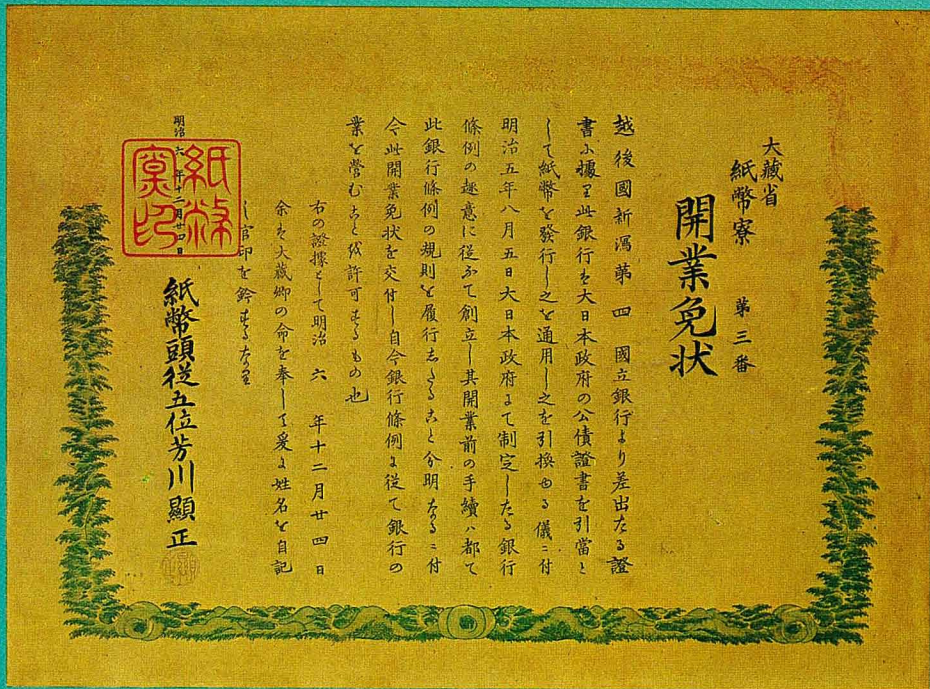 大藏省
紙幣寮　第三番
開業免状
越後國新潟第四國立銀行より差出たる證
書ふ據り此銀行を大日本政府の公債證書を引當と
して紙幣を發行し之を通用し之を引換ゆる儀ニ付
明治五年八月五日大日本政府よて制定したる銀行
條例の趣意に従ふて創立し其開業前の手續ハ都て
此銀行條例の規則を履行したること分明なるニ付
今此開業免状を交付し自今銀行條例よ従て銀行の
業を營むことを許可するもの也
右の證據として明治六年十二月廿四日
余を大藏卿の命を奉して爰よ姓名を自記
し官印を鈐するなり
明治六年十二月廿四日
紙幣寮印
紙幣頭従五位芳川顯正